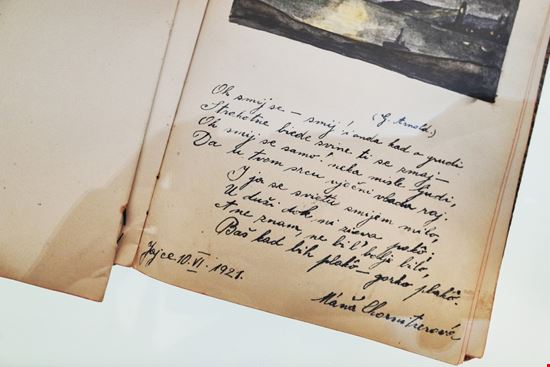 Oh smij se – smij! i onda kad u grudi
(G. Arnold.)
Strahotne biede svine ti se zmaj –
Oh smij se samo! neka misle ljudi,
Da u tvom srcu vječni vlada raj.
I ja se svietu smijem milo,
U duši dok mi zieva pakô!
A ne znam, ne bi l' bolje bilo,
Baš kad bih plakô – gorko plakô.
Jajce 10. VI. 1921.
Máňa